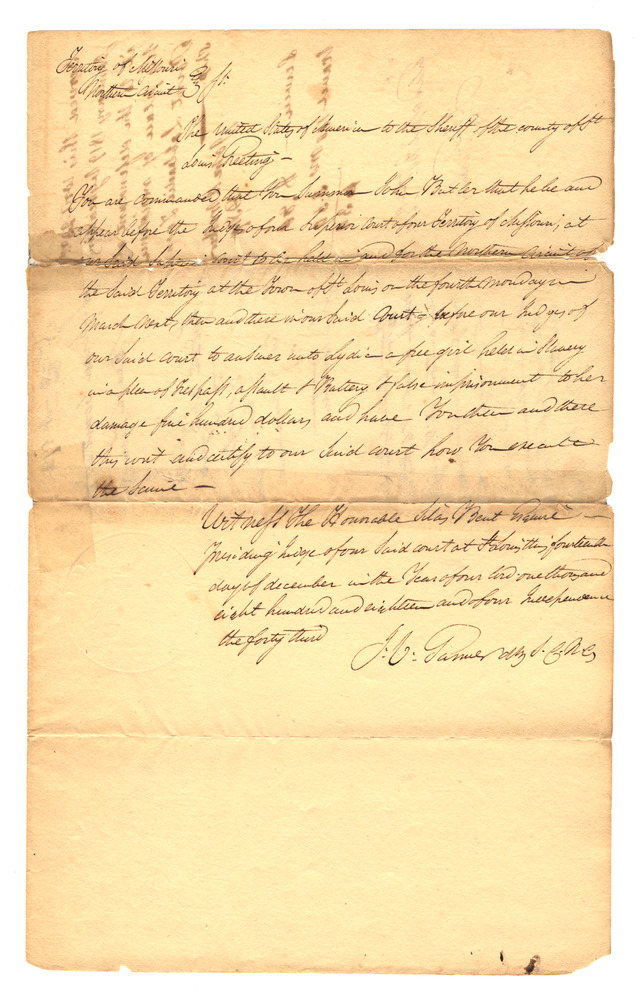 Territory of Missouri
Northern Circuit } St.
The United States of America to the Sheriff of the county of St
Louis Greeting —
You are commanded that You Summon John Butler that he be and
appear before the Judges of our Superior Court of our Territory of Missouri, at
our Said Superior Court to be held in and for the Northern Circuit of
the Said Territory at the Town of St Louis on the fourth Monday in
March Next, then and there in our Said Court before our Judges of
our Said Court to answer unto Lydia a free girl held in Slavery
in a plea of Trespass, assault & Battery & false imprisonment to her
damage five hundred dollars, and have You then and there
this writ and certify to our Said court how You execute
the Same —
Witness The Honorable Silas Bent Esquire —
Presiding Judge of our Said court at St Louis this fourteenth
day of december in the Year of our lord one thousand
eight hundred and eighteen and of our Independence
the forty third
J. V. Garnier